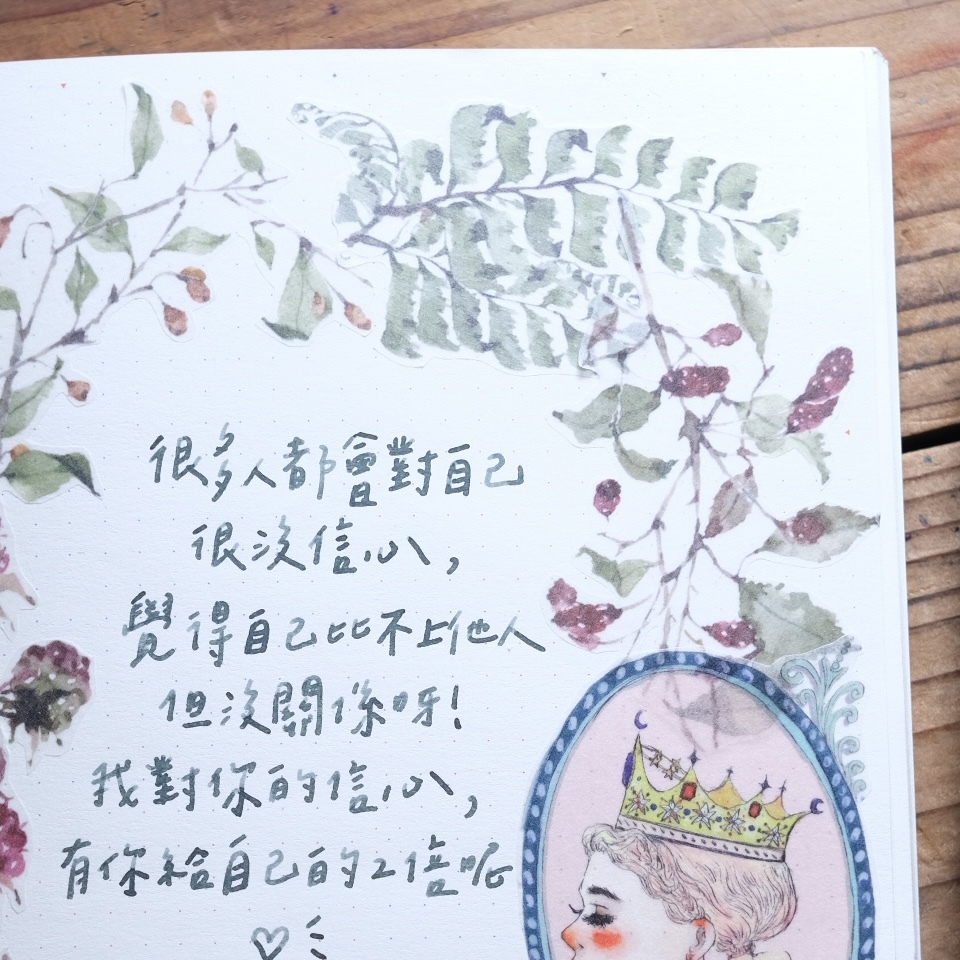 很多人都會對自己
很沒信心,
覺得自己比不上他人
但沒關係呀!
我對你的信心,
有你給自己的2倍呢